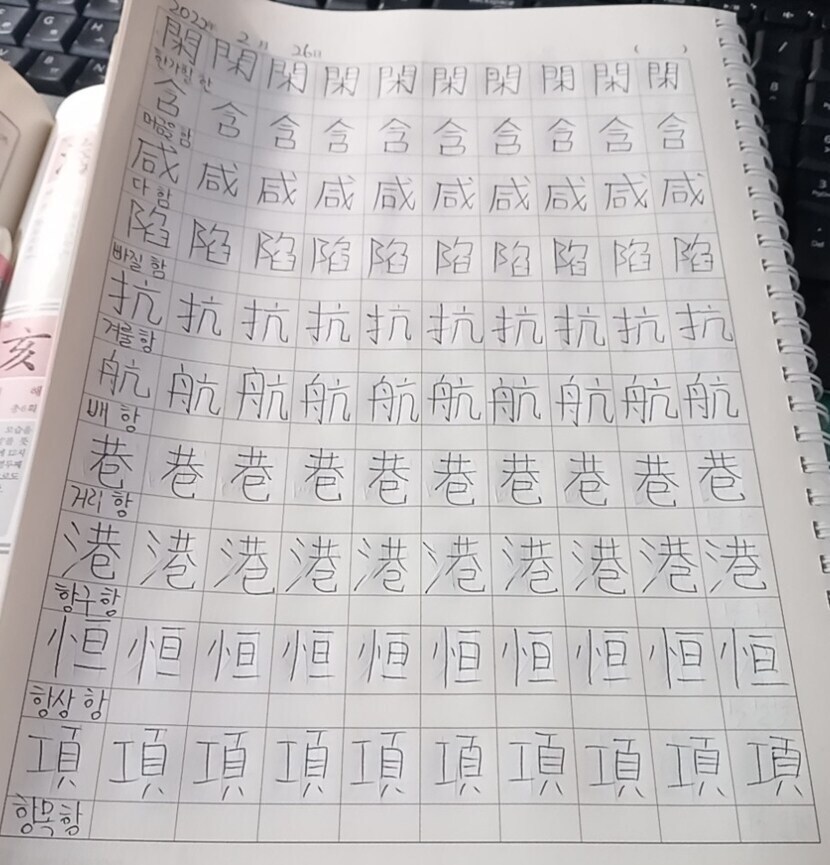 2022年 2月 26日 ( )
閑 閑 閑 閑 閑 閑 閑 閑 閑 閑
한가할 한
含 含 含 含 含 含 含 含 含 含
머금을 함
咸 咸 咸 咸 咸 咸 咸 咸 咸 咸
다 함
陷 陷 陷 陷 陷 陷 陷 陷 陷 陷
빠질 함
抗 抗 抗 抗 抗 抗 抗 抗 抗 抗
겨룰 항
航 航 航 航 航 航 航 航 航 航
배 항
巷 巷 巷 巷 巷 巷 巷 巷 巷 巷
거리 항
港 港 港 港 港 港 港 港 港 港
항구 항
恒 恒 恒 恒 恒 恒 恒 恒 恒 恒
항상 항
項 項 項 項 項 項 項 項 項 項
항목 항
亥
해
총6획